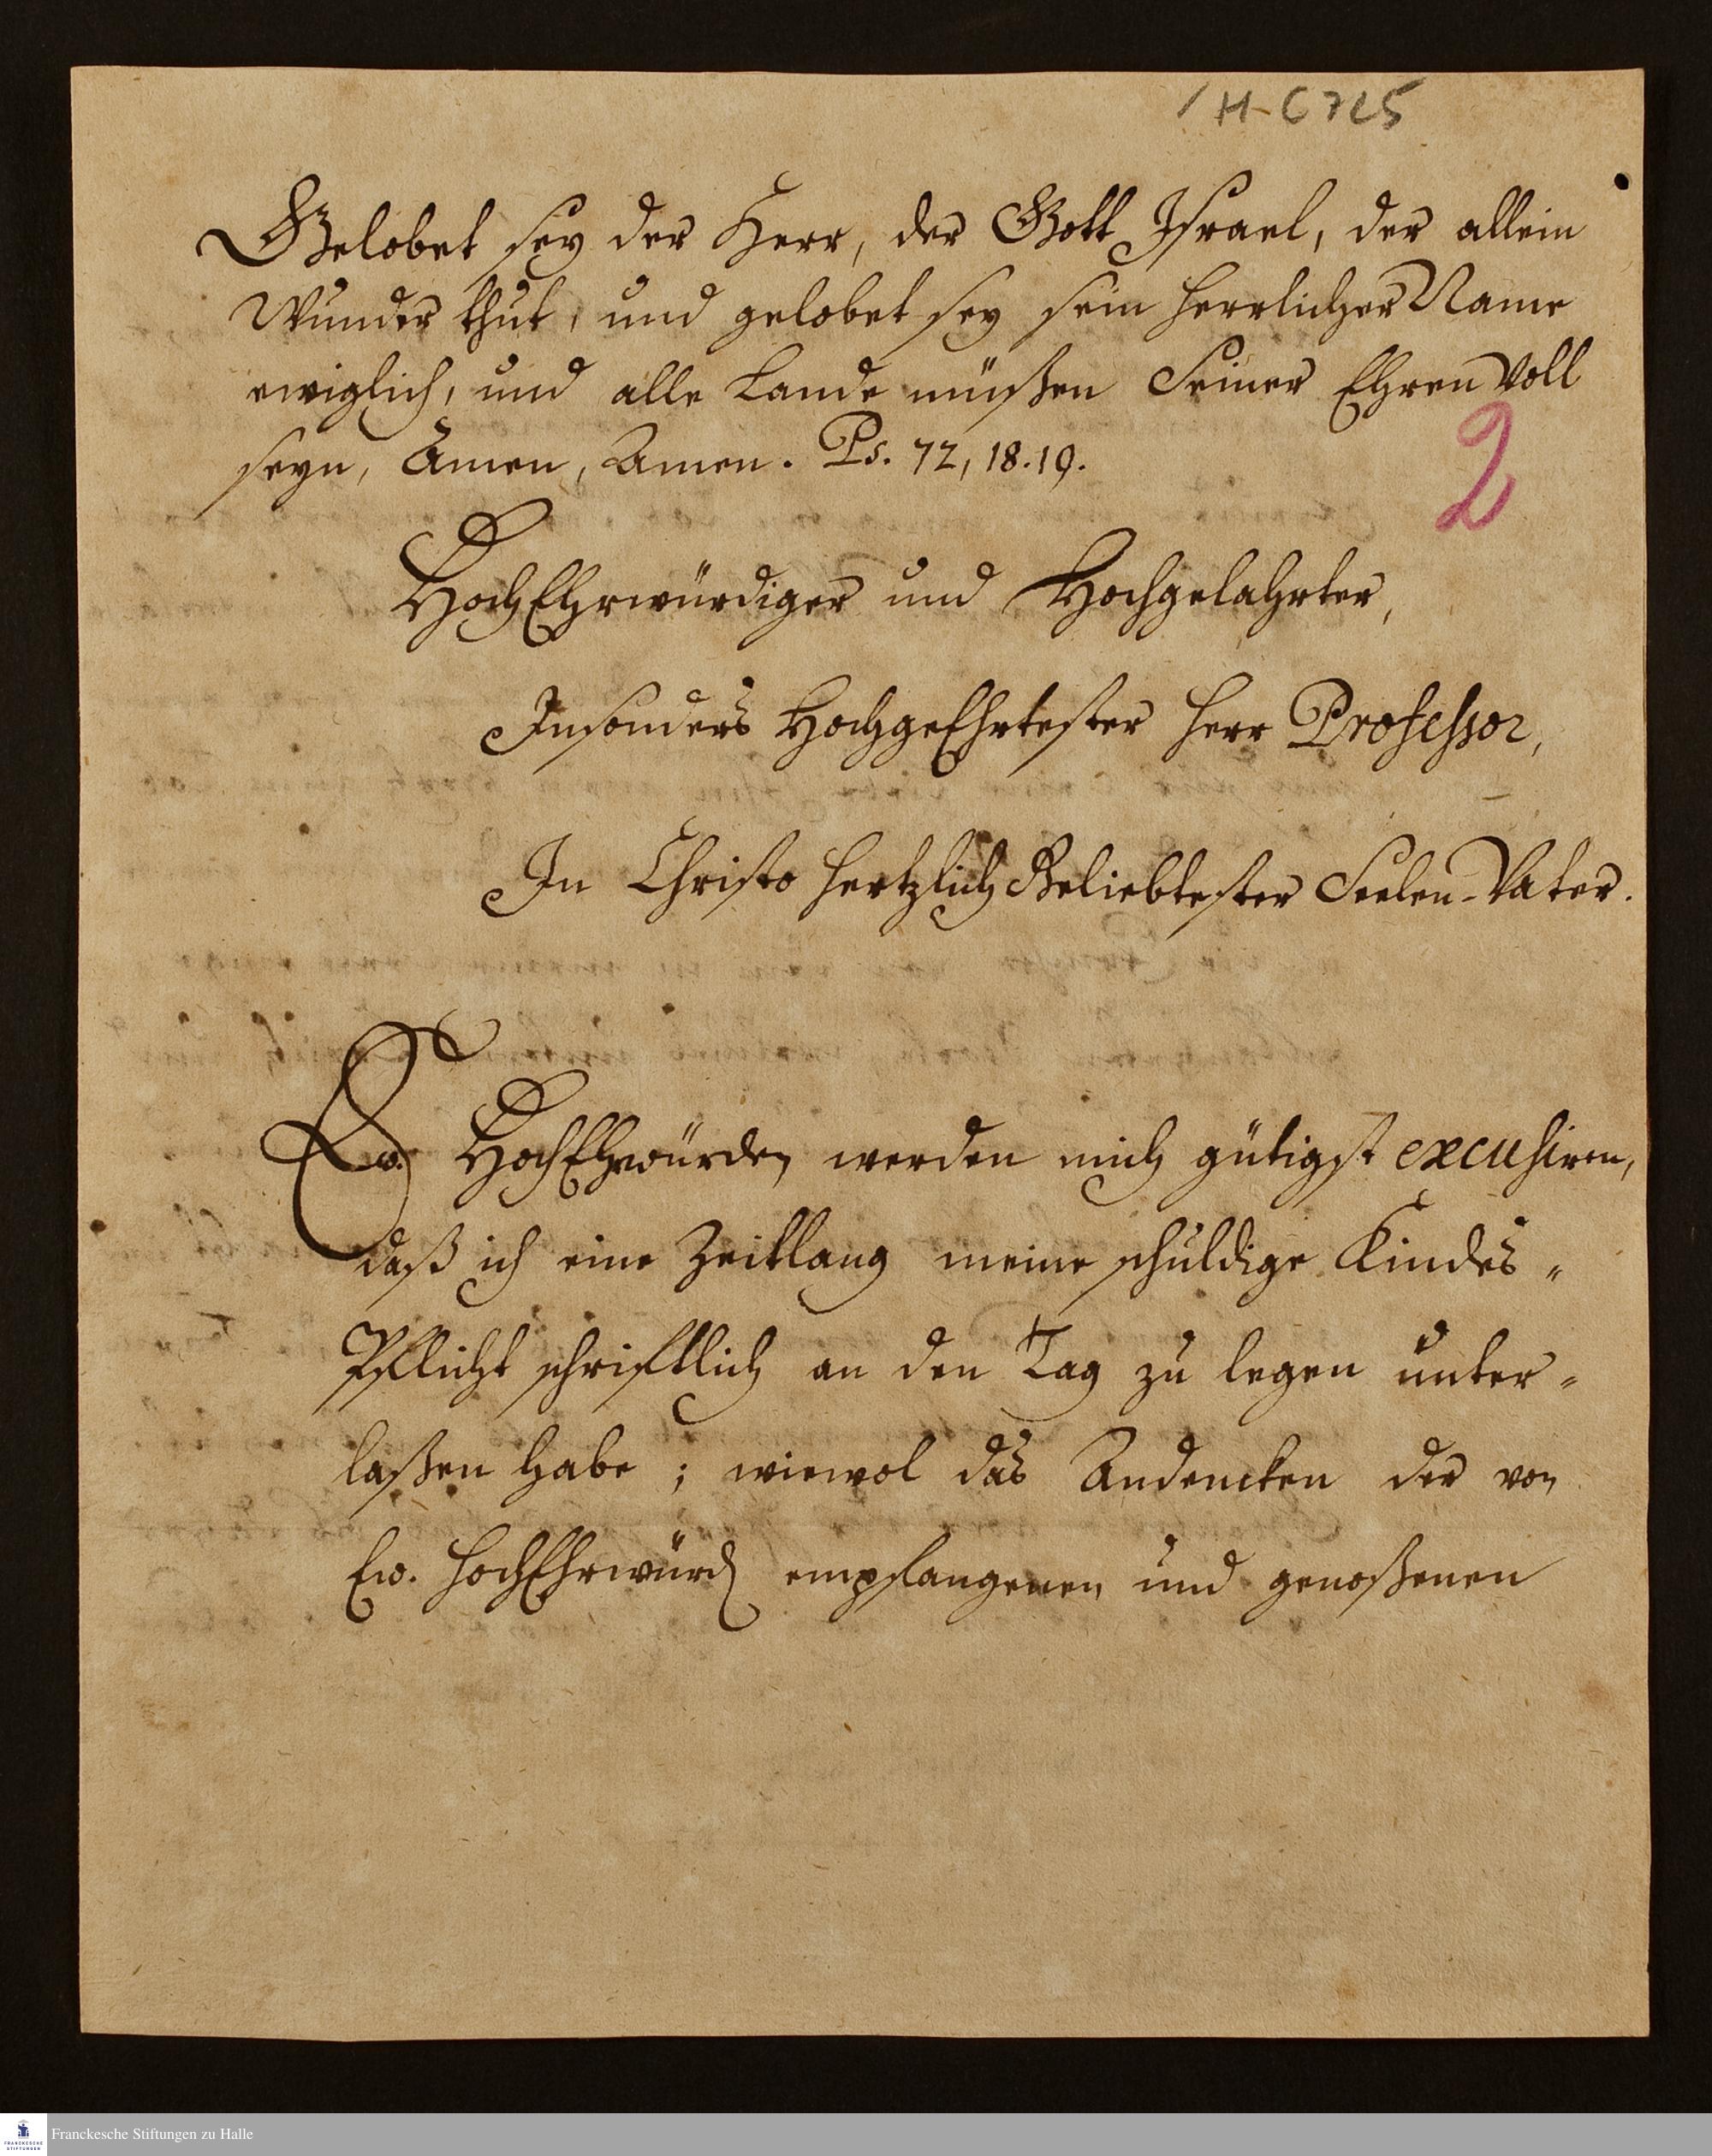 H C 725
Gelobet sey der Herr, der Gott Israel, der allein
Wunder thut, und gelobet sey sein herrlicher Name
ewiglich, und alle Lande müßen Seiner Ehren voll
seyn, Amen, Amen. Ps. 72, 18.19.
2
HochEhrwürdiger und Hochgelahrter,
Insonders HochgeEhrtester Herr Professor,
In Christo hertzlich Geliebtester Seelen-Vater.
Ew. HochEhrwürden werden mich gütigst excusiren,
daß ich eine Zeitlang meine schuldige Kindes-
Pflicht schrifftlich an den Tag zu legen unter-
laßen habe; wiewol das Andencken der von
Ew. HochEhrwürd empfangenen und genoßenen
Franckesche Stiftungen zu Halle